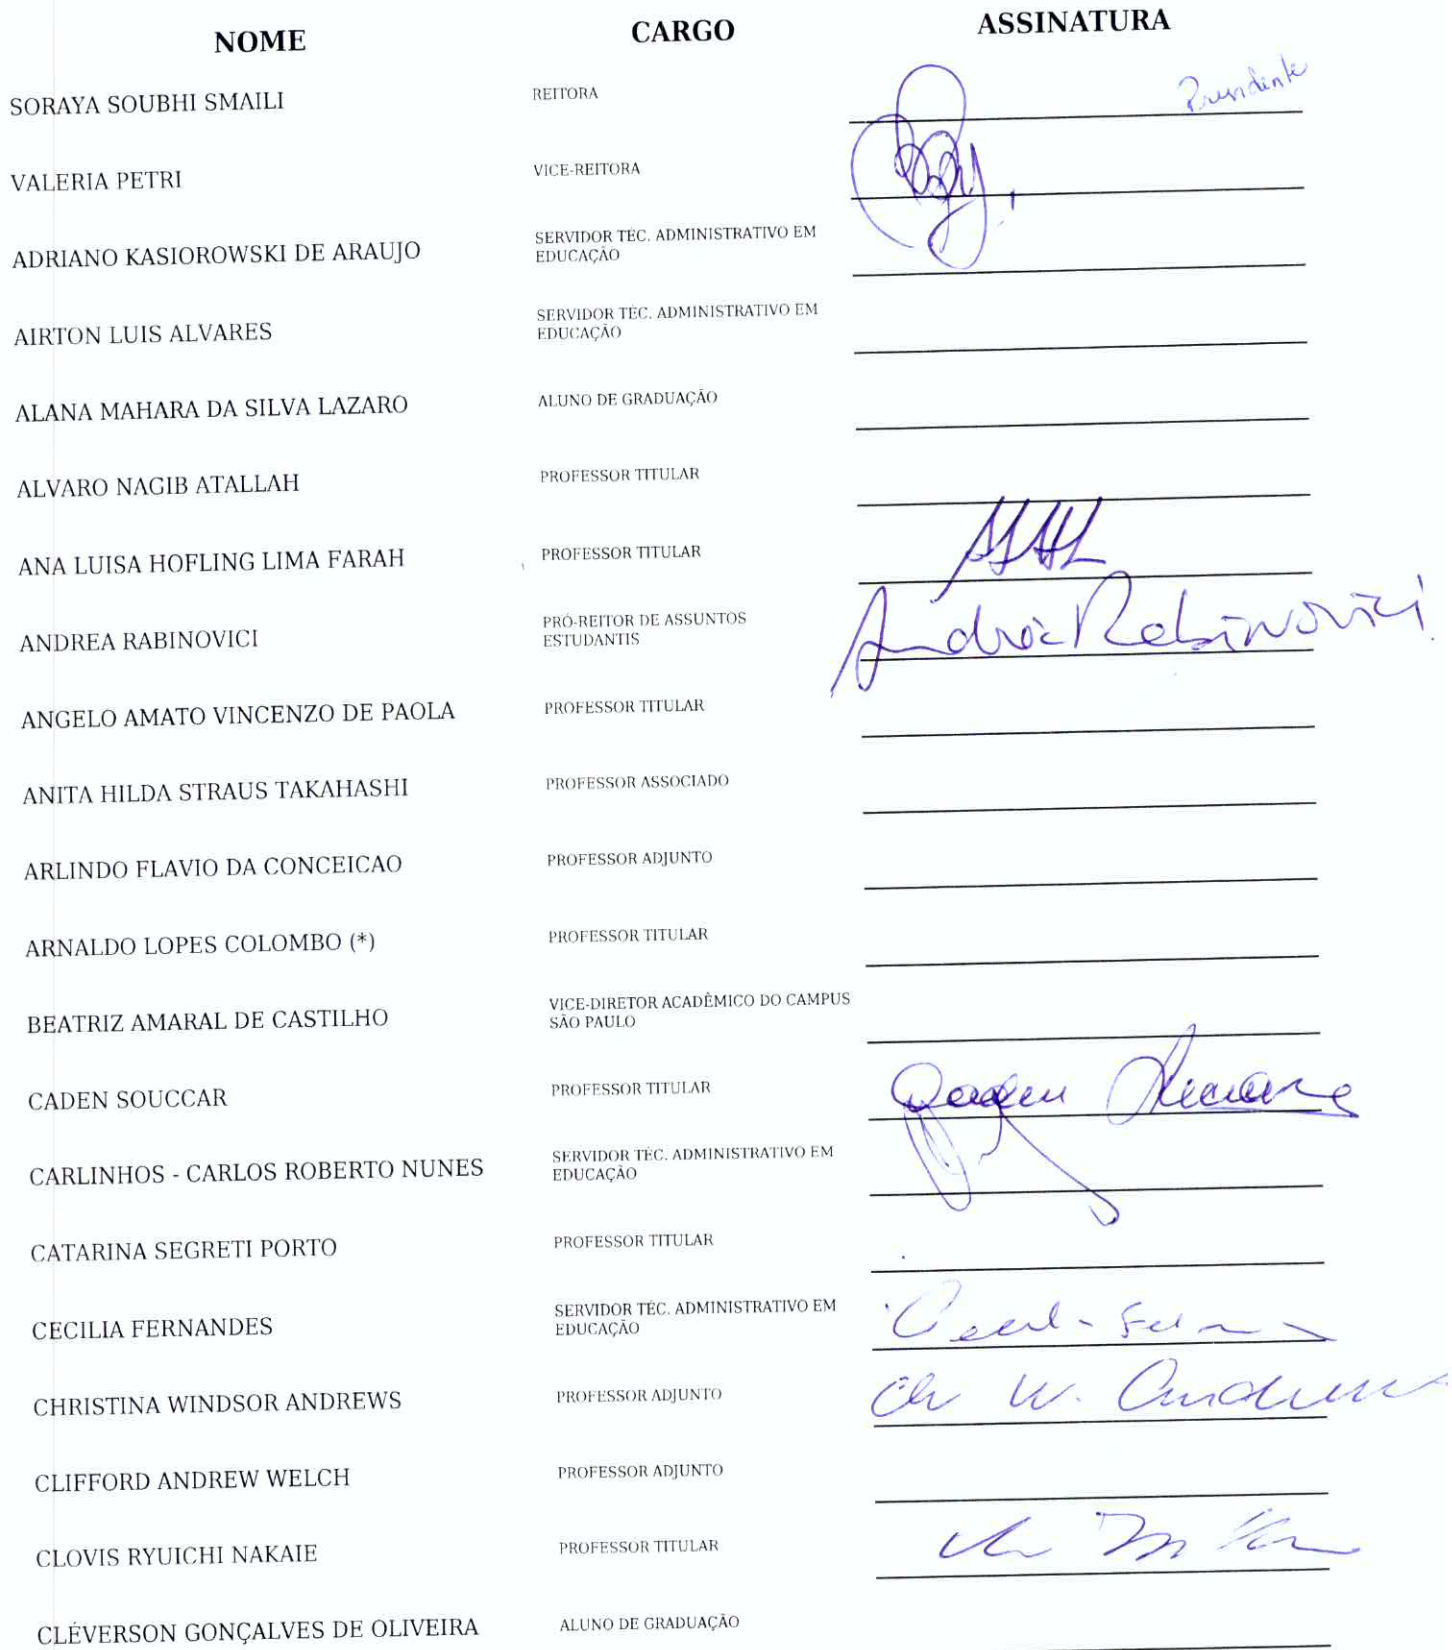 NOME CARGO ASSINATURA
SORAYA SOUBHI SMAILI REITORA Presidente
VALERIA PETRI VICE-REITORA
ADRIANO KASIOROWSKI DE ARAUJO SERVIDOR TÉC. ADMINISTRATIVO EM
EDUCAÇÃO
AIRTON LUIS ALVARES SERVIDOR TÉC. ADMINISTRATIVO EM
EDUCAÇÃO
ALANA MAHARA DA SILVA LAZARO ALUNO DE GRADUAÇÃO
ALVARO NAGIB ATALLAH PROFESSOR TITULAR
ANA LUISA HOFLING LIMA FARAH PROFESSOR TITULAR
ANDREA RABINOVICI PRÓ-REITOR DE ASSUNTOS
ESTUDANTIS Andréa Rabinovici
ANGELO AMATO VINCENZO DE PAOLA PROFESSOR TITULAR
ANITA HILDA STRAUS TAKAHASHI PROFESSOR ASSOCIADO
ARLINDO FLAVIO DA CONCEICAO PROFESSOR ADJUNTO
ARNALDO LOPES COLOMBO (*) PROFESSOR TITULAR
BEATRIZ AMARAL DE CASTILHO VICE-DIRETOR ACADÊMICO DO CAMPUS
SÃO PAULO
CADEN SOUCCAR PROFESSOR TITULAR Caden Souccar
CARLINHOS - CARLOS ROBERTO NUNES SERVIDOR TÉC. ADMINISTRATIVO EM
EDUCAÇÃO
CATARINA SEGRETI PORTO PROFESSOR TITULAR
CECILIA FERNANDES SERVIDOR TÉC. ADMINISTRATIVO EM
EDUCAÇÃO
CHRISTINA WINDSOR ANDREWS PROFESSOR ADJUNTO Ch W. Andrews
CLIFFORD ANDREW WELCH PROFESSOR ADJUNTO
CLOVIS RYUICHI NAKAIE PROFESSOR TITULAR
CLÉVERSON GONÇALVES DE OLIVEIRA ALUNO DE GRADUAÇÃO